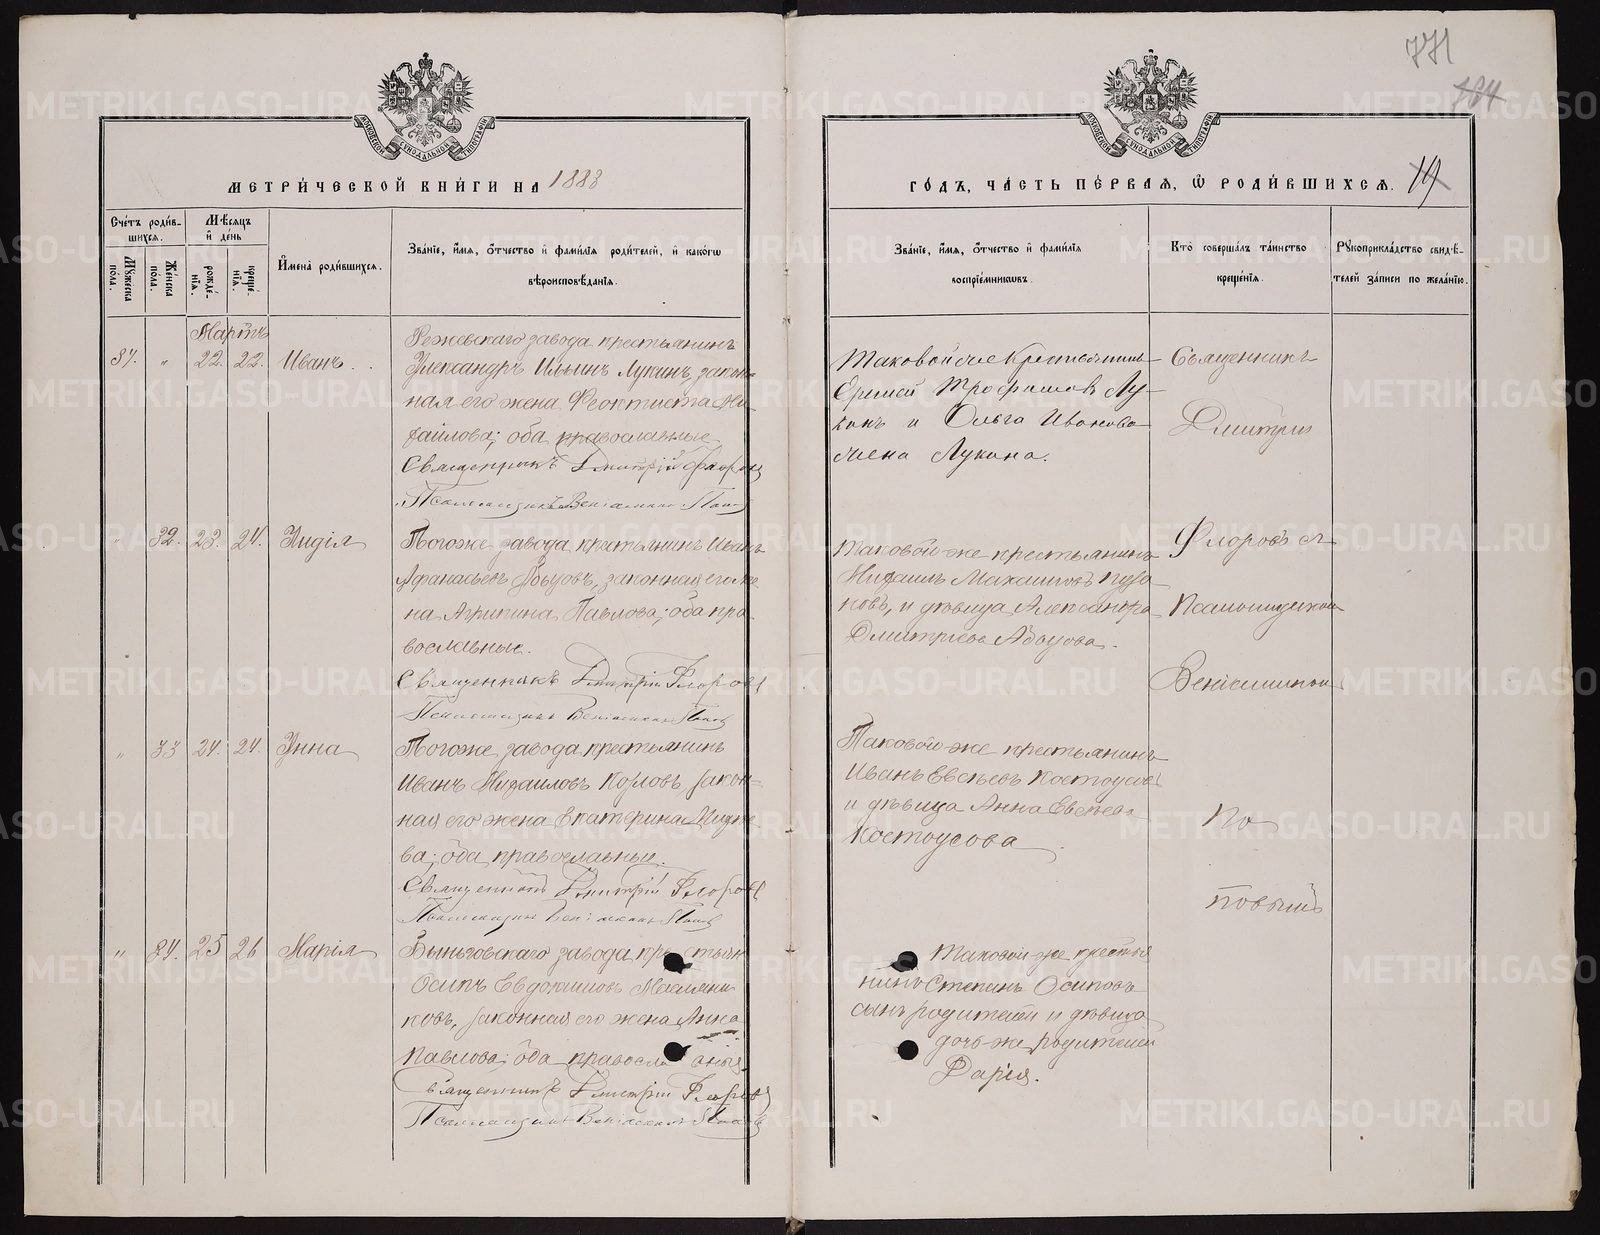 771
784
МЕТРИ́ЧЕСКОЙ КНИ́ГИ НА 1883
ГО́ДЪ, ЧА́СТЬ ПЕ́РВАЯ, Ѽ РОДИ́ВШИХСЯ. 19
Сче́тъ роди́в-
шихся.
Мѣ́сяцъ
и҆ де́нь
Мꙋ́жеска по́ла.
Же́нска по́ла.
рожде́нїя.
креще́нїя.
И҆мена̀ роди́вшихся.
Зва́нїе, и҆́мя, ѻ҆́тчество и҆ фами́лїя роди́телей, и҆ како́гѡ
вѣроисповѣ́данїя.
Зва́нїе, и҆́мя, ѻ҆́тчество и҆ фами́лїя
воспрїе́мникѡвъ.
Кто̀ соверша́лъ та́инство
креще́нїя.
Рꙋкоприкла́дство свидѣ́-
телей за́писи по жела́нїю.
Мартъ
37. " 22. 22. Иванъ
Режевскаго завода крестьянинъ
Александръ Ильинъ Лукинъ, закон-
ная его жена Феоктиста Ми-
хайлова; оба православные
Священникъ Дмитрій Флоровъ
Псаломщикъ Веніаминъ Поповъ
Таковой же крестьянинъ
Еремей Трофимовъ Лу-
кинъ и Ольга Иванова
жена Лукина.
Священникъ
Дмитрій
" 32. 23. 24. Лидія
Тогоже завода крестьянинъ Иванъ
Афанасьевъ законная его же-
на Агрипина Павлова; оба пра-
вославные.
Священникъ Дмитрій Флоровъ
Псаломщикъ Веніаминъ Поповъ
Таковой-же крестьянинъ
Михаилъ
и дѣвица Александра
Дмитріева
Флоровъ и
Псаломщикъ
Веніаминъ
" 33 24. 24. Анна
Тогоже завода крестьянинъ
Иванъ Михаиловъ Козловъ, закон-
ная его жена Екатерина
ва; оба православные.
Священникъ Дмитрій Флоровъ
Псаломщикъ Веніаминъ Поповъ
Таковой-же крестьянинъ
Иванъ Евсѣевъ Костоусовъ
и дѣвица Анна Евсѣева
Костоусова
По
повымъ
" 34. 25 26 Марія
Быньговскаго завода крестьян
Осипъ Евдокимовъ Масляни
ковъ, законная его жена Анна
Павлова; оба православныя.
Священникъ Дмитрій Флоровъ
Псаломщикъ Веніаминъ Поповъ
Таковой-же крестья
нинъ Степанъ Осиповъ
сынъ родителей и дѣвица
дочь-же родителей
Дарія.
METRIKI.GASO-URAL.RU